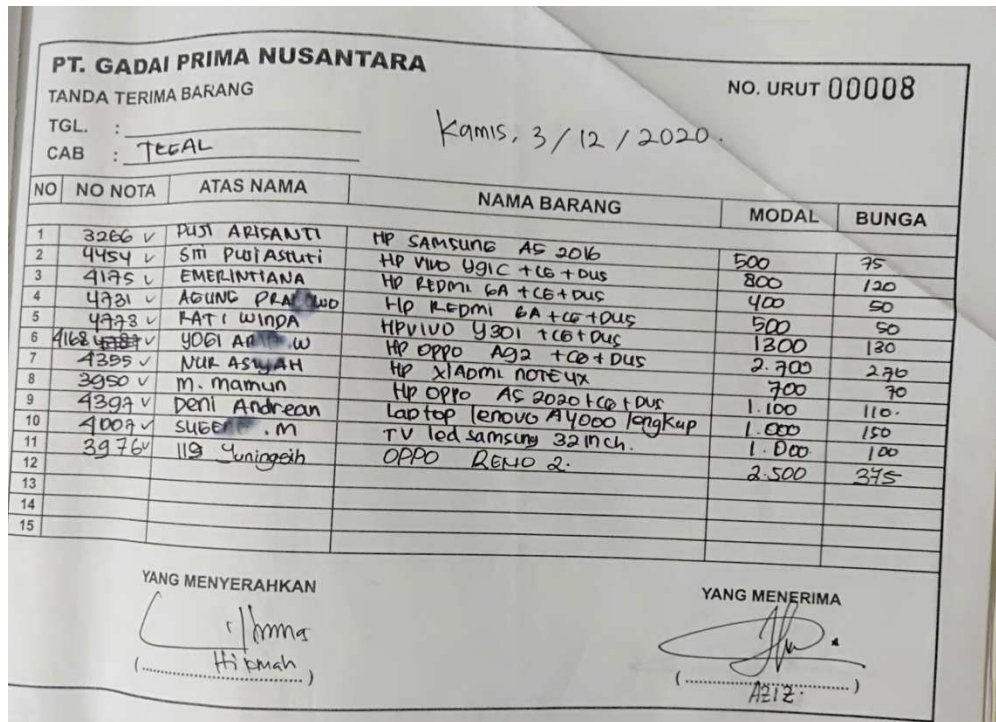 PT. GADAI PRIMA NUSANTARA
NO. URUT 00008
TANDA TERIMA BARANG
TGL. :
Kamis, 3/12/2020.
CAB : TEGAL
NO NO NOTA ATAS NAMA NAMA BARANG MODAL BUNGA
1 3266 v PUJI ARISANTI HP SAMSUNG A5 2016 500 75
2 4454 v Siti Puji Astuti HP VIVO Y91C + CG + DUS 800 120
3 4175 v EMERINTIANA HP REDMI 6A + CG + DUS 400 50
4 4731 v AGUNG HP REDMI 6A + CG + DUS 500 50
5 4773 v RATI WINDA HP VIVO Y30I + CG + DUS 1300 130
6 4168 v YOGI .W HP OPPO A92 + CG + DUS 2.700 270
7 4395 v NUR ASIYAH HP XIAOMI NOTE 4X 700 70
8 3950 v M. Mamun HP OPPO A5 2020 + CG + DUS 1.100 110.
9 4397 v Deni Andrean Laptop lenovo A4000 lengkap 1.000 150
10 4007 v .M TV led samsung 32 inch. 1.000 100
11 3976 v Yuningsih OPPO RENO 2. 2.500 375
12
13
14
15
YANG MENYERAHKAN YANG MENERIMA
(Hikmah) (AZIZ.)